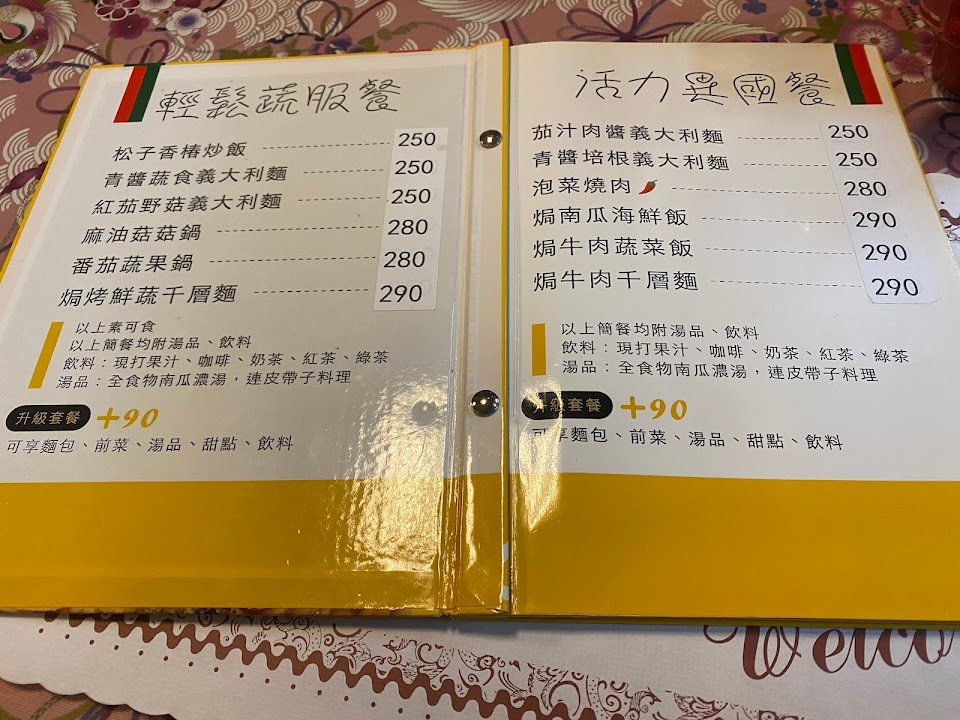 輕鬆蔬服餐
松子香椿炒飯 250
青醬蔬食義大利麵 250
紅茄野菇義大利麵 250
麻油菇菇鍋 280
番茄蔬果鍋 280
焗烤鮮蔬千層麵 290
以上素可食
以上簡餐均附湯品、飲料
飲料：現打果汁、咖啡、奶茶、紅茶、綠茶
湯品：全食物南瓜濃湯，連皮帶子料理
升級套餐 +90
可享麵包、前菜、湯品、甜點、飲料
活力異國餐
茄汁肉醬義大利麵 250
青醬培根義大利麵 250
泡菜燒肉 280
焗南瓜海鮮飯 290
焗牛肉蔬菜飯 290
焗牛肉千層麵 290
以上簡餐均附湯品、飲料
飲料：現打果汁、咖啡、奶茶、紅茶、綠茶
湯品：全食物南瓜濃湯，連皮帶子料理
升級套餐 +90
可享麵包、前菜、湯品、甜點、飲料
Welco